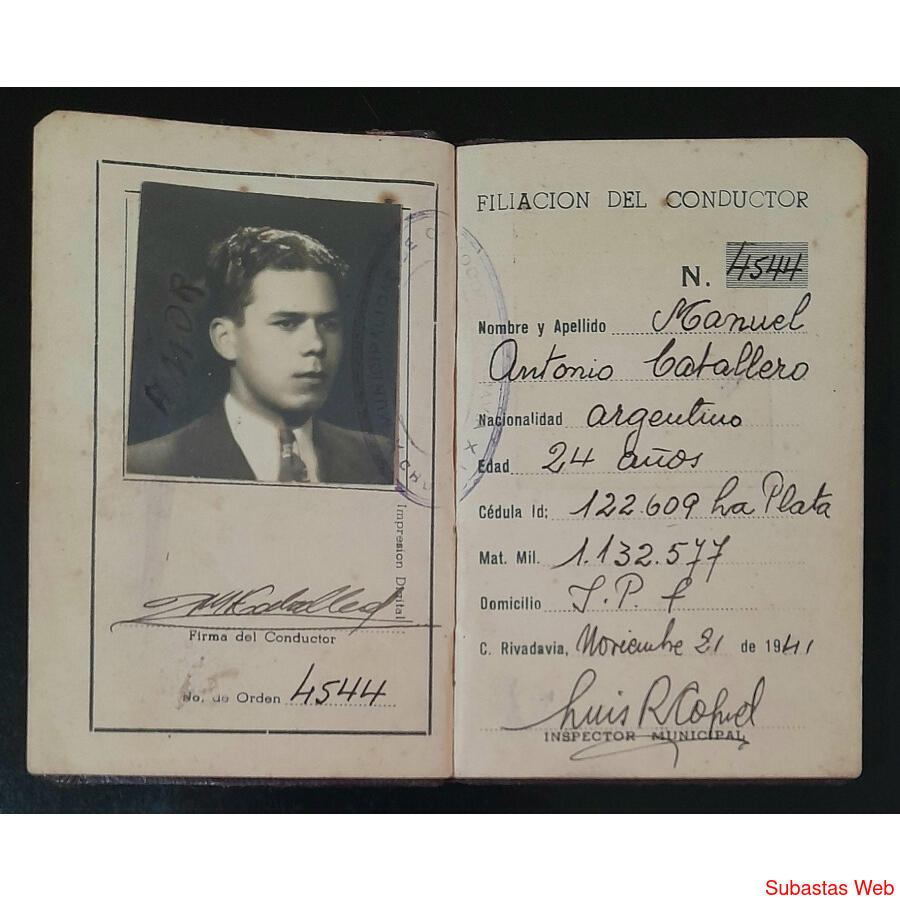 Impresion Digital
Firma del Conductor
No. de Orden 4544
FILIACION DEL CONDUCTOR
N. 4544
Nombre y Apellido Manuel
Antonio Caballero
Nacionalidad argentino
Edad 24 años
Cédula Id; 122.609 La Plata
Mat. Mil. 1.132.577
Domicilio
C. Rivadavia, Noviembre 21 de 1941
Luis R
INSPECTOR MUNICIPAL
Subastas Web